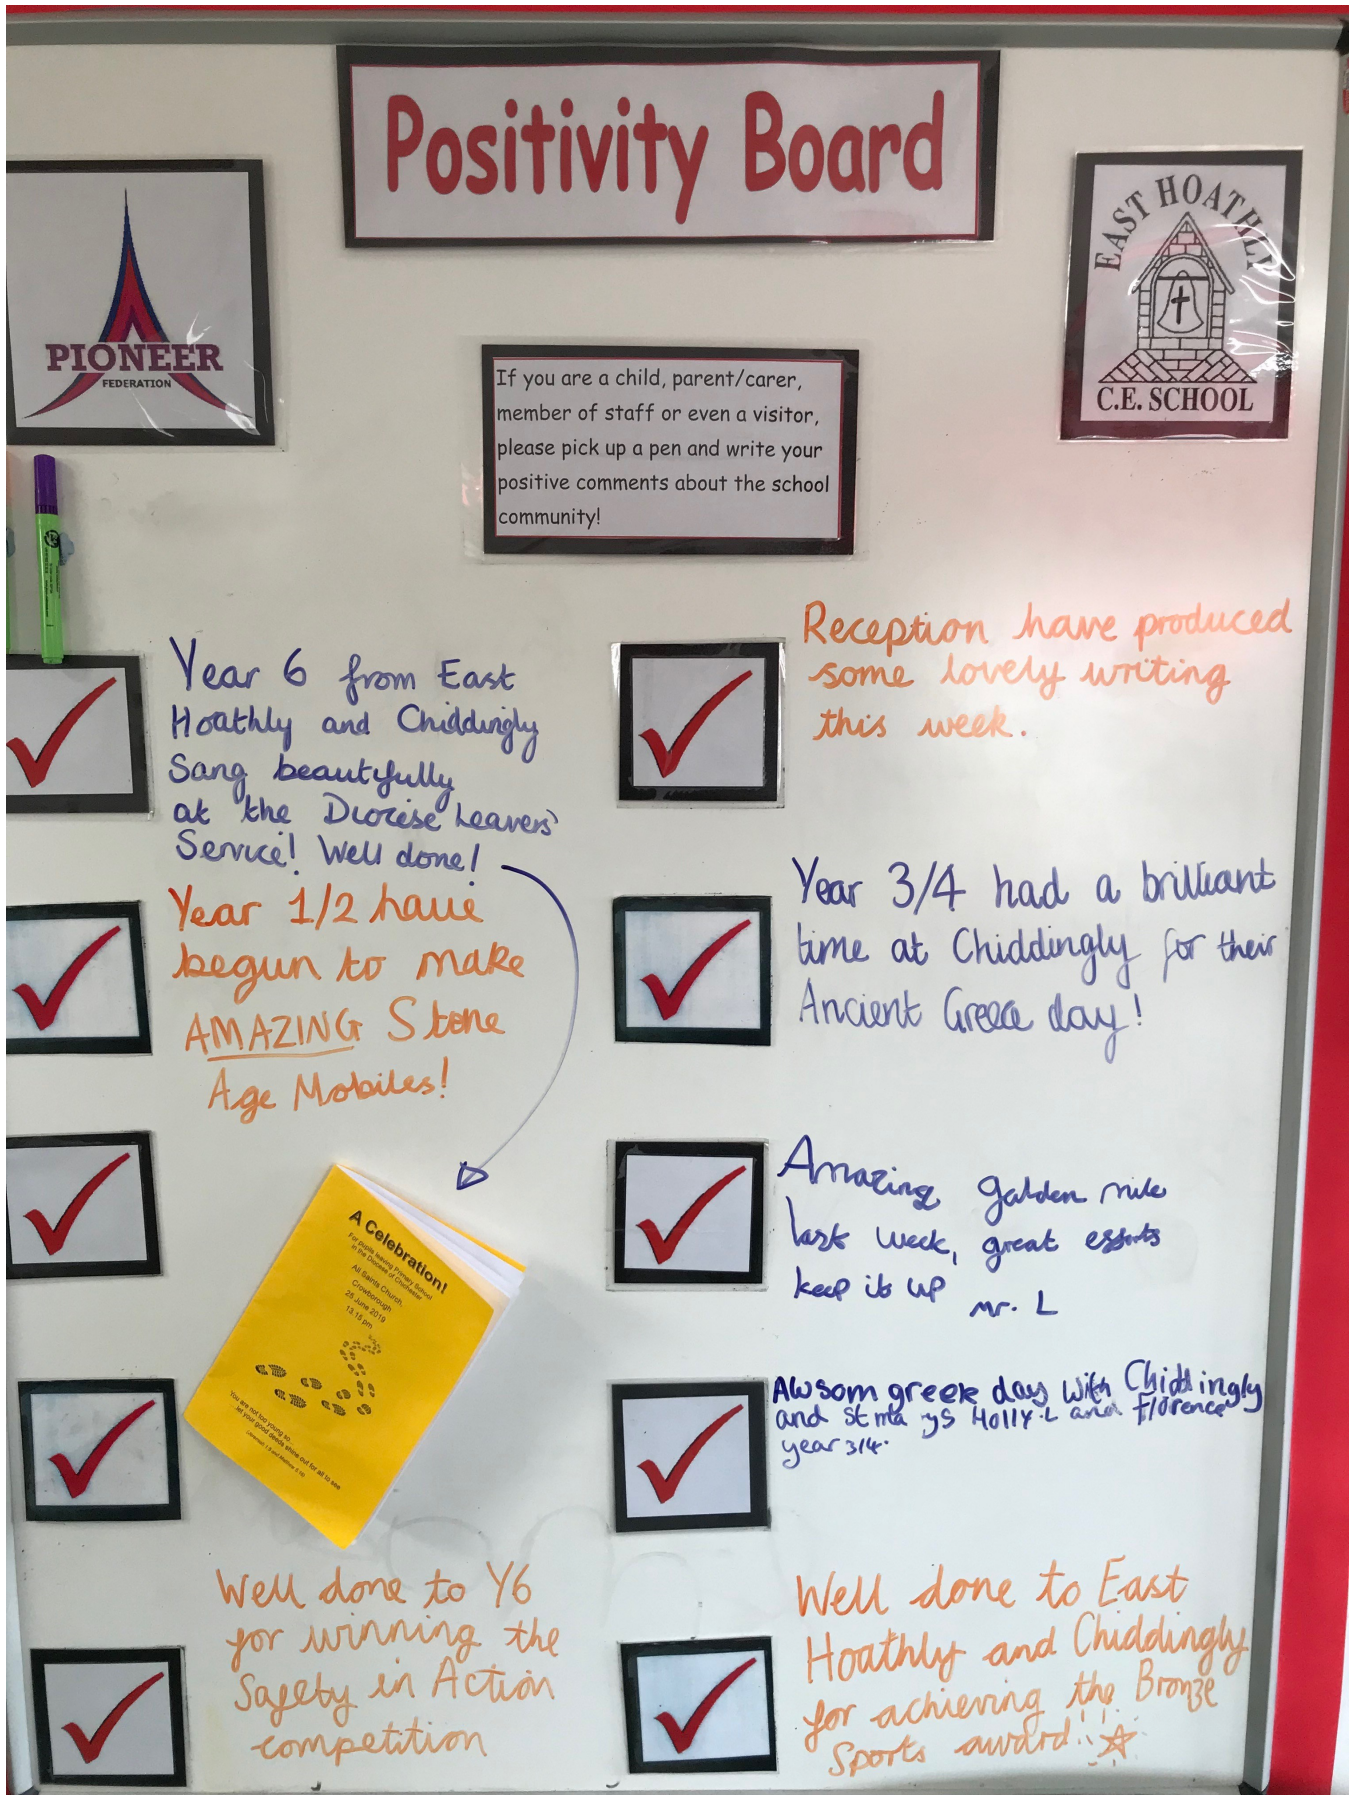 Positivity Board
PIONEER
FEDERATION
EAST HOATHLY
C.E. SCHOOL
If you are a child, parent/carer,
member of staff or even a visitor,
please pick up a pen and write your
positive comments about the school
community!
Year 6 from East
Hoathly and Chiddingly
Sang beautifully
at the Diocise Leavers'
Service! Well done!
Year 1/2 have
begun to make
AMAZING Stone
Age Mobiles!
A Celebration!
For pupils leaving Primary School
in the Diocese of Chichester
All Saints Church,
Crowborough
25 June 2019
13.15 pm
You are not too young so
let your good deeds shine out for all to see
Well done to Y6
for winning the
Safety in Action
competition
Reception have produced
some lovely writing
this week.
Year 3/4 had a brilliant
time at Chiddingly for their
Ancient Greece day!
Amazing golden mile
last week, great efforts
keep it up
Mr. L
Awsom greek day with Chiddingly
and st ma ys Holly.L and Florence
year 3/4.
Well done to East
Hoathly and Chiddingly
for achieving the Bronze
Sports award!